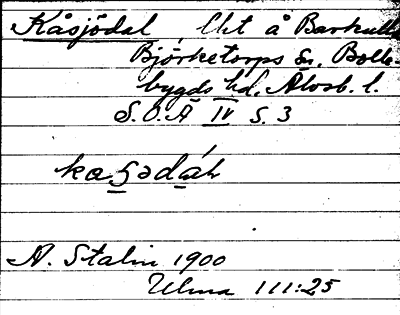 Kåsjödal, Lht å Barkulla
Björketorps sn. Bolle-
bygds hd. Älvsb. l.
S.O.Ä IV s. 3
A. Stalin 1900
Ulma 111:25